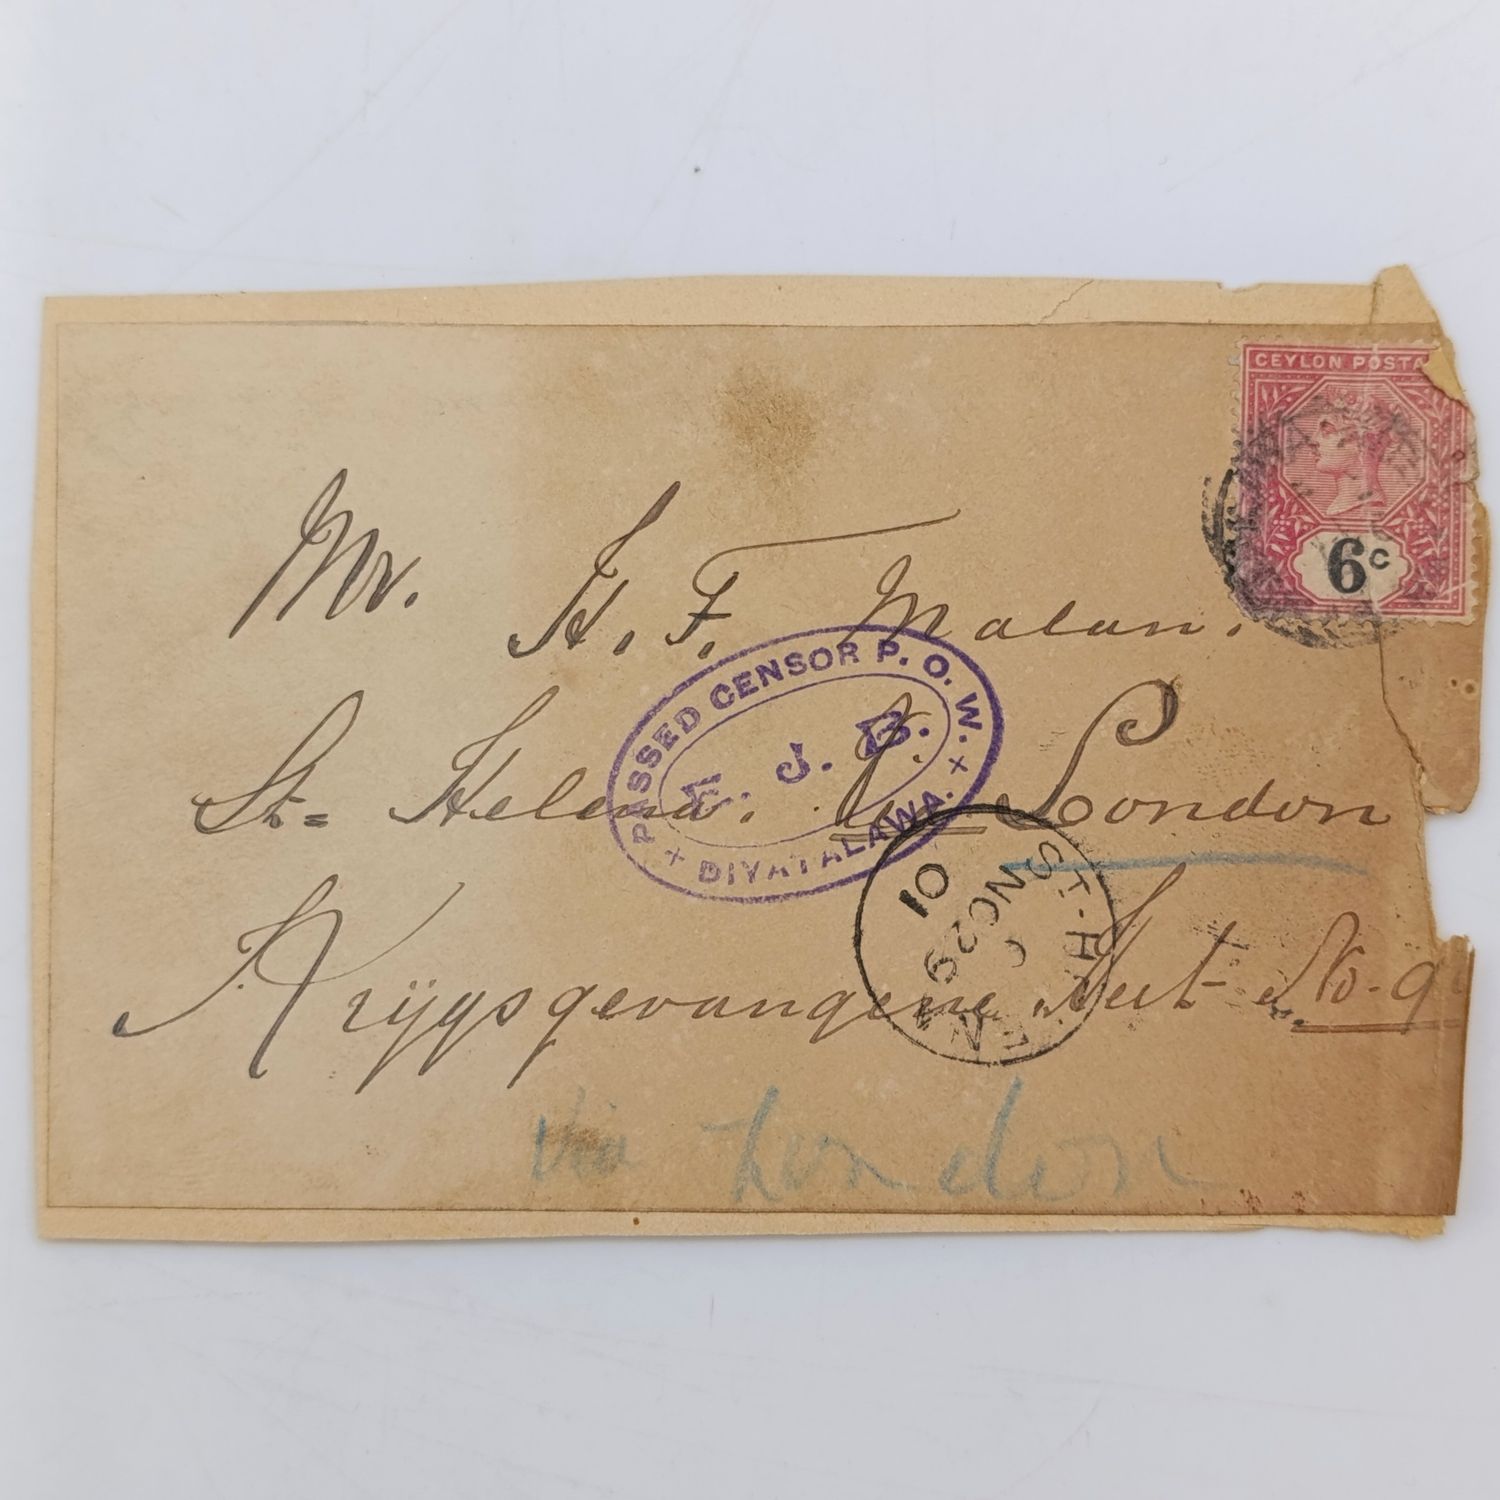 CEYLON POSTA
6c
Mr. H. F. Malan.
PASSED CENSOR P. O. W.
. J. B.
DIYATALAWA.
St= Helena. London
ST. HELENA
NO 29
01
Krijgsgevangene No. 9
via London